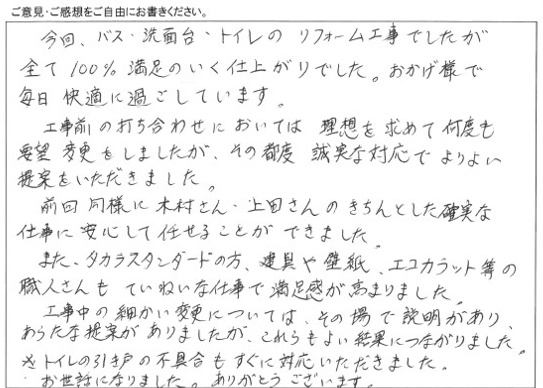 ご意見・ご感想をご自由にお書きください。
今回、バス・洗面台・トイレの リフォーム工事でしたが
全て 100% 満足のいく仕上がりでした。おかげ様で
毎日 快適に過ごしています。
工事前の打ち合わせにおいては 理想を求めて何度も
要望 変更をしましたが、その都度 誠実な対応で よりよい
提案をいただきました。
前回同様に 木村さん・上田さんのきちんとした確実な
仕事に 安心して任せることが できました。
また、タカラスタンダードの方、建具や壁紙、エコカラット等の
職人さんも ていねいな仕事で 満足感が高まりました。
工事中の細かい変更については、その場で説明があり、
あらたな提案がありましたが、これらもよい結果につながりました。
※トイレの引き戸の不具合もすぐに対応いただきました。
お世話になりました。ありがとうございます。